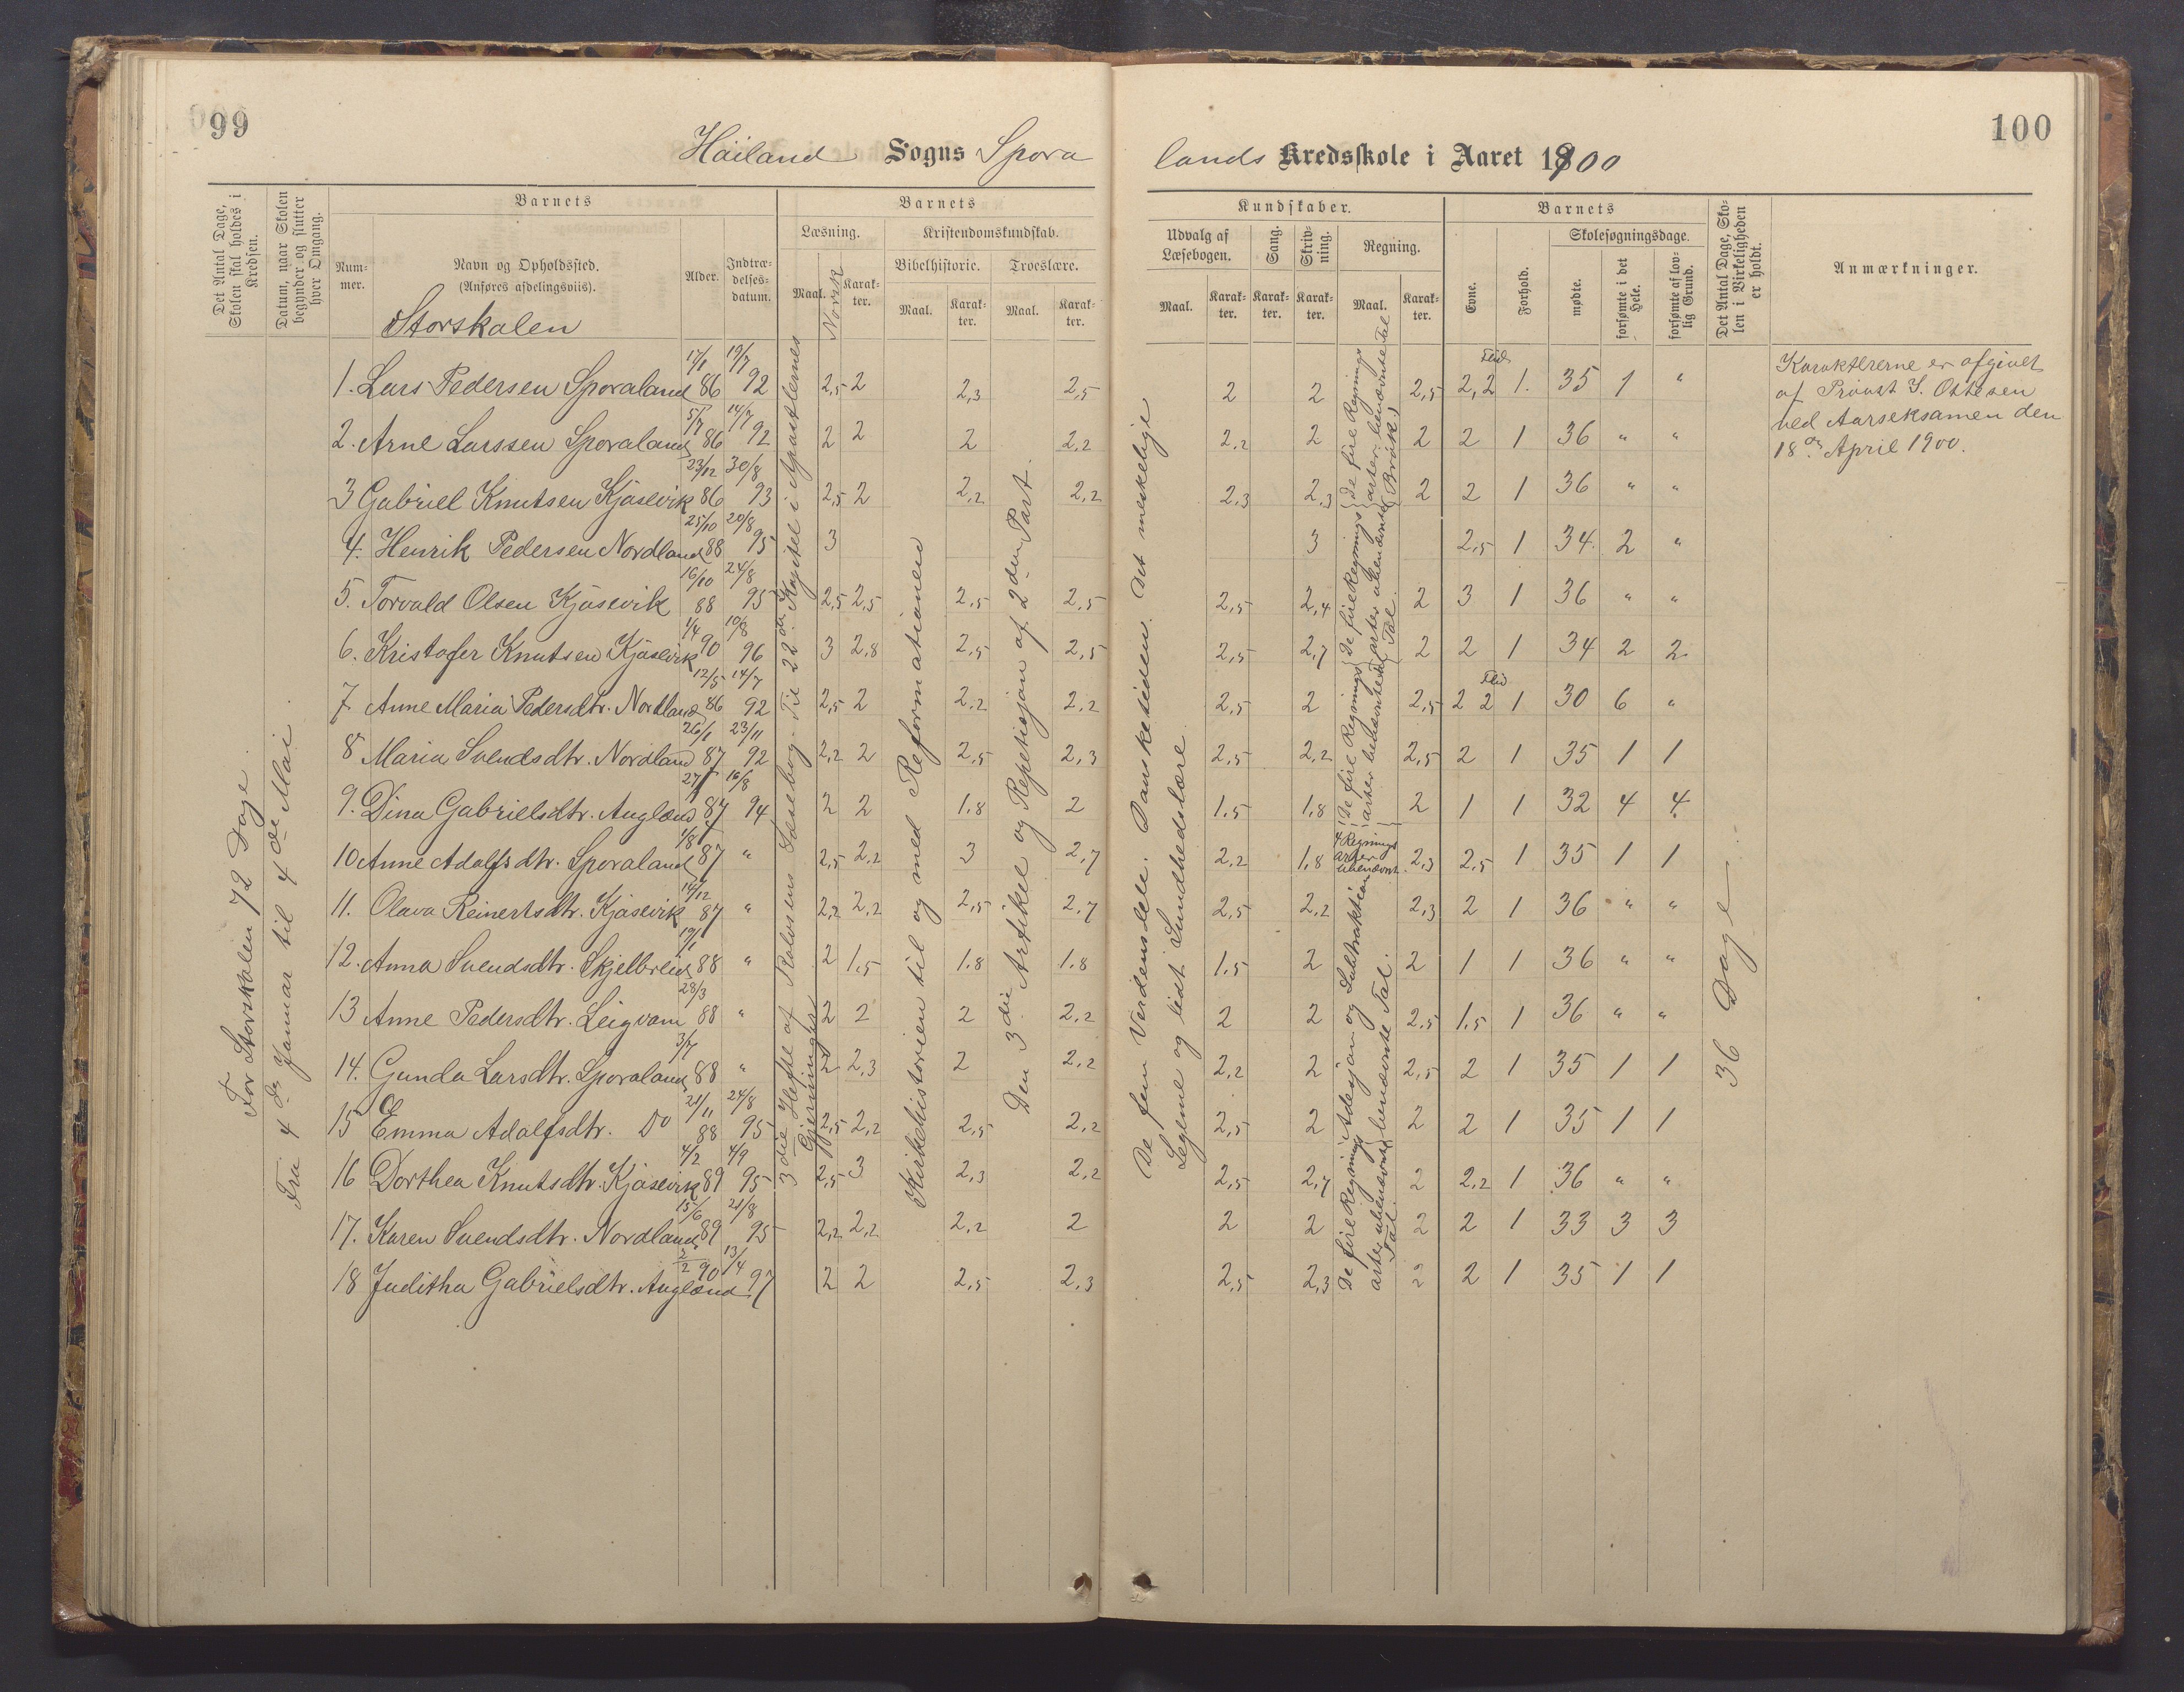 99
100
Háiland Sogns Spora
lands Kredsskole i Aaret 1900
Det Antal Dage, Skolen skal holdes i Kredsen.
Datum, naar Skolen begynder og slutter hver Omgang.
Barnets
Num-
mer.
Navn og Opholdssted.
(Anføres afdelingsviis).
Storskolen
Alder.
Indtræ-
delses-
datum.
Barnets
Læsning.
Maal.
Norsk
Karak-
ter.
Kristendomskundskab.
Bibelhistorie.
Troeslære.
Maal.
Karak-
ter.
Maal.
Karak-
ter.
Kundskaber.
Udvalg af
Læsebogen.
Sang.
Skriv-
ning.
Regning.
Maal.
Karak-
ter.
Karak-
ter.
Karak-
ter.
Maal.
Karak-
ter.
Barnets
Evne.
Forhold.
Skolesøgningsdage.
mødte.
forsømte i det Hele.
forsømte af lov-
lig Grund.
Det Antal Dage, Sko-
len i Virkeligheden
er holdt.
Anmærkninger.
For Storskolen 72 Dage.
Fra 4de Januar til 4de Mai.
3die Hefte af Rolvsens Læsebog. Til 22de Kapitel i Apostlernes
Gjerninger
Kirkehistorien til og med Reformationen
Den 3die Artikel og Repetisjon af 2den Part.
De fem Verdensdele. Danskketiden. Det meskelige
Legeme og lidt Sundhedslære.
De fire Regnings
arter benævnte Tal
(Brøk)
De fire Regnings
arter ubenævnte
Tal.
De fire Regnings
arter benævnte Tal
4 Regnings
arter
ubenævnt.
Adisjon og Subtraktion
benævnte Tal.
De fire Regnings
arter ubenævnte
Tal.
36 Dage
1. Lars Pedersen Sporaland 17/1 86 19/7 92 2,5 2 2,3 2,5 2 2 2,5 2,2 Flid 1. 35 1 "
2. Arne Larssen Sporaland 5/7 86 14/7 92 2 2 2 2,2 2,2 2 2 2 1 36 " "
3 Gabriel Knutsen Kjäsevik 23/12 86 30/8 93 2,5 2 2,2 2,2 2,3 2,3 2 2 1 36 " "
4. Henrik Pedersen Nordland 25/10 88 20/8 95 3 3 2,5 1 34. 2 "
5. Torvald Olsen Kjäsevik 16/10 88 24/8 95 2,5 2,5 2,5 2,5 2,5 2,4 2 3 1 36 " "
6. Kristofer Knutsen Kjäsevik 1/4 90 10/8 96 3 2,8 2,5 2,5 2,5 2,7 2 2 1 34 2 2
7 Anne Maria Pedersdtr. Nordland 12/5 86 14/7 92 2,5 2 2,2 2,2 2,5 2 2,5 2 2 Flid 1 30 6 "
8 Maria Svendsdtr. Nordland 26/1 87 23/11 92 2,2 2 2,5 2,3 2,5 2,2 2,5 2 1 35 1 1
9. Dina Gabrielsdtr. Augland 27/7 87 16/8 94 2 2 1.8 2 1.5 1,8 2 1 1 32 4 4
10 Anne Adolfsdtr. Sporaland 1/8 87 " 2,5 2,2 3 2,7 2,2 1,8 2,3 2,5 1 35 1 1
11. Olava Reinertsdtr. Kjäsevik 14/12 87 " 2,2 2,2 2,5 2,7 2,5 2,2 2,3 2 1 36 " "
12. Anna Svendsdtr. Skjelbreid 19/1 88 " 2 1.5 1.8 1.8 1.5 2 2 1 1 36 " "
13 Anne Pedersdtr. Leigvam 28/3 88 " 2 2 2 2,2 2 2 2,5 1.5 1 36 " "
14. Gunda Larsdtr. Sporaland 3/7 88 " 2 2,3 2 2,2 2,2 2 2,5 2 1 35 1 1
15 Emma Adolfsdtr. Do 21/11 88 24/8 95 2,5 2,2 2,5 2,2 2,5 2 2 2 1 35 1 1
16 Dorthea Knutsdtr. Kjäsevik 4/2 89 4/9 95 2,5 3 2,3 2,2 2,5 2,7 2 2,2 1 36 " "
17. Karen Svendsdtr. Nordland 15/6 89 21/8 95 2,2 2,2 2,2 2 2 2 2 2 1 33 3 3
18 Juditha Gabrielsdtr. Augland 2/2 90 13/4 97 2 2 2,5 2,3 2,5 2,3 2 2 1 35 1 1
Karaktererne er afgivet
af Provst S. Ottesen
ved Aarseksamen den
18de April 1900.